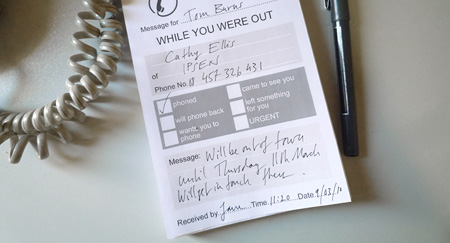 Message for Tom Burns
WHILE YOU WERE OUT
Cathy Ellis
of IPSEN
Phone No. 457 326 431
phoned
came to see you
will phone back
left something for you
wants you to phone
URGENT
Message: Will be out of town
until Thursday 11th March
Will get in touch then.
Received by Jane Time 11:20 Date 9/03/10